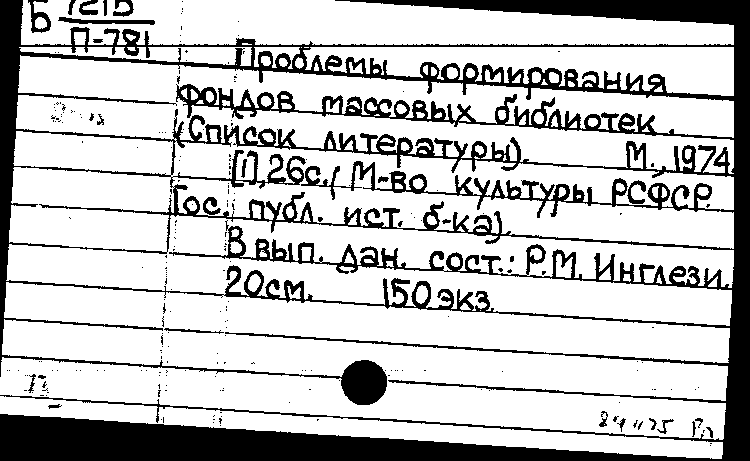 Б 721Б
П-781
Проблемы формирования
фондов массовых библиотек.
(Список литературы). М., 1974.
[1], 26с. (М-во культуры РСФСР.
Гос. публ. ист. б-ка).
В вып. дан. сост.: Р.М. Инглези.
20см. 150экз.